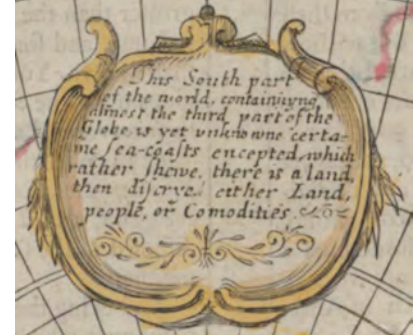 This South part
of the world, containinyng
almost the third part of the
Globe, is yet vnknowne certa-
ine sea-coasts encepted, which
rather shewe, there is a land,
then discrve either Land,
people, or Comodities.